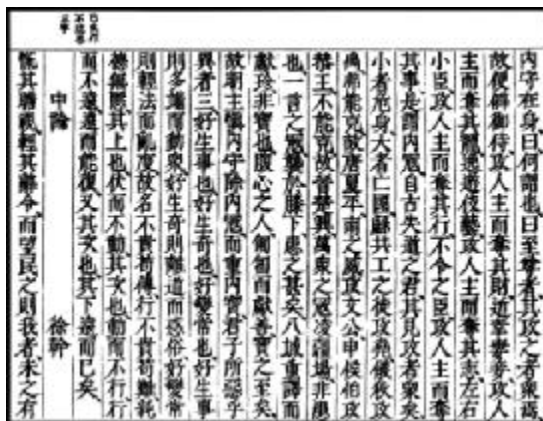 內守在身曰何謂也曰至尊者其攻之者衆焉
故便僻御侍攻人主而奪其財近幸妻妾攻人
主而奪其寵逸遊伎藝攻人主而奪其志左右
小臣攻人主而奪其行不令之臣攻人主而奪
其事是謂內寇自古失道之君其見攻者衆矣
小者危身大者亡國鯀共工之徒攻堯儀狄攻
禹弗能克故唐夏平南之威攻文公申侯伯攻
恭王不能克故晉楚興萬衆之寇凌疆場非患
也一言之寇襲於膝下患之甚矣八域重譯而
獻珍非寶也腹心之人匍匐而獻善寶之至矣
故明主慎內守除內寇而重內寶君子所惡乎
異者三好生事也好生奇也好變常也好生事
則多端而動衆好生奇則離道而惑俗好變常
則輕法而亂度故名不貴苟傳行不貴苟難純
德無慝其上也伏而不動其次也動而不行行
而不遠遠而能復又其次也其下遠而已矣
中論 徐幹
慨其瞻視輕其辭令而望民之則我者未之有